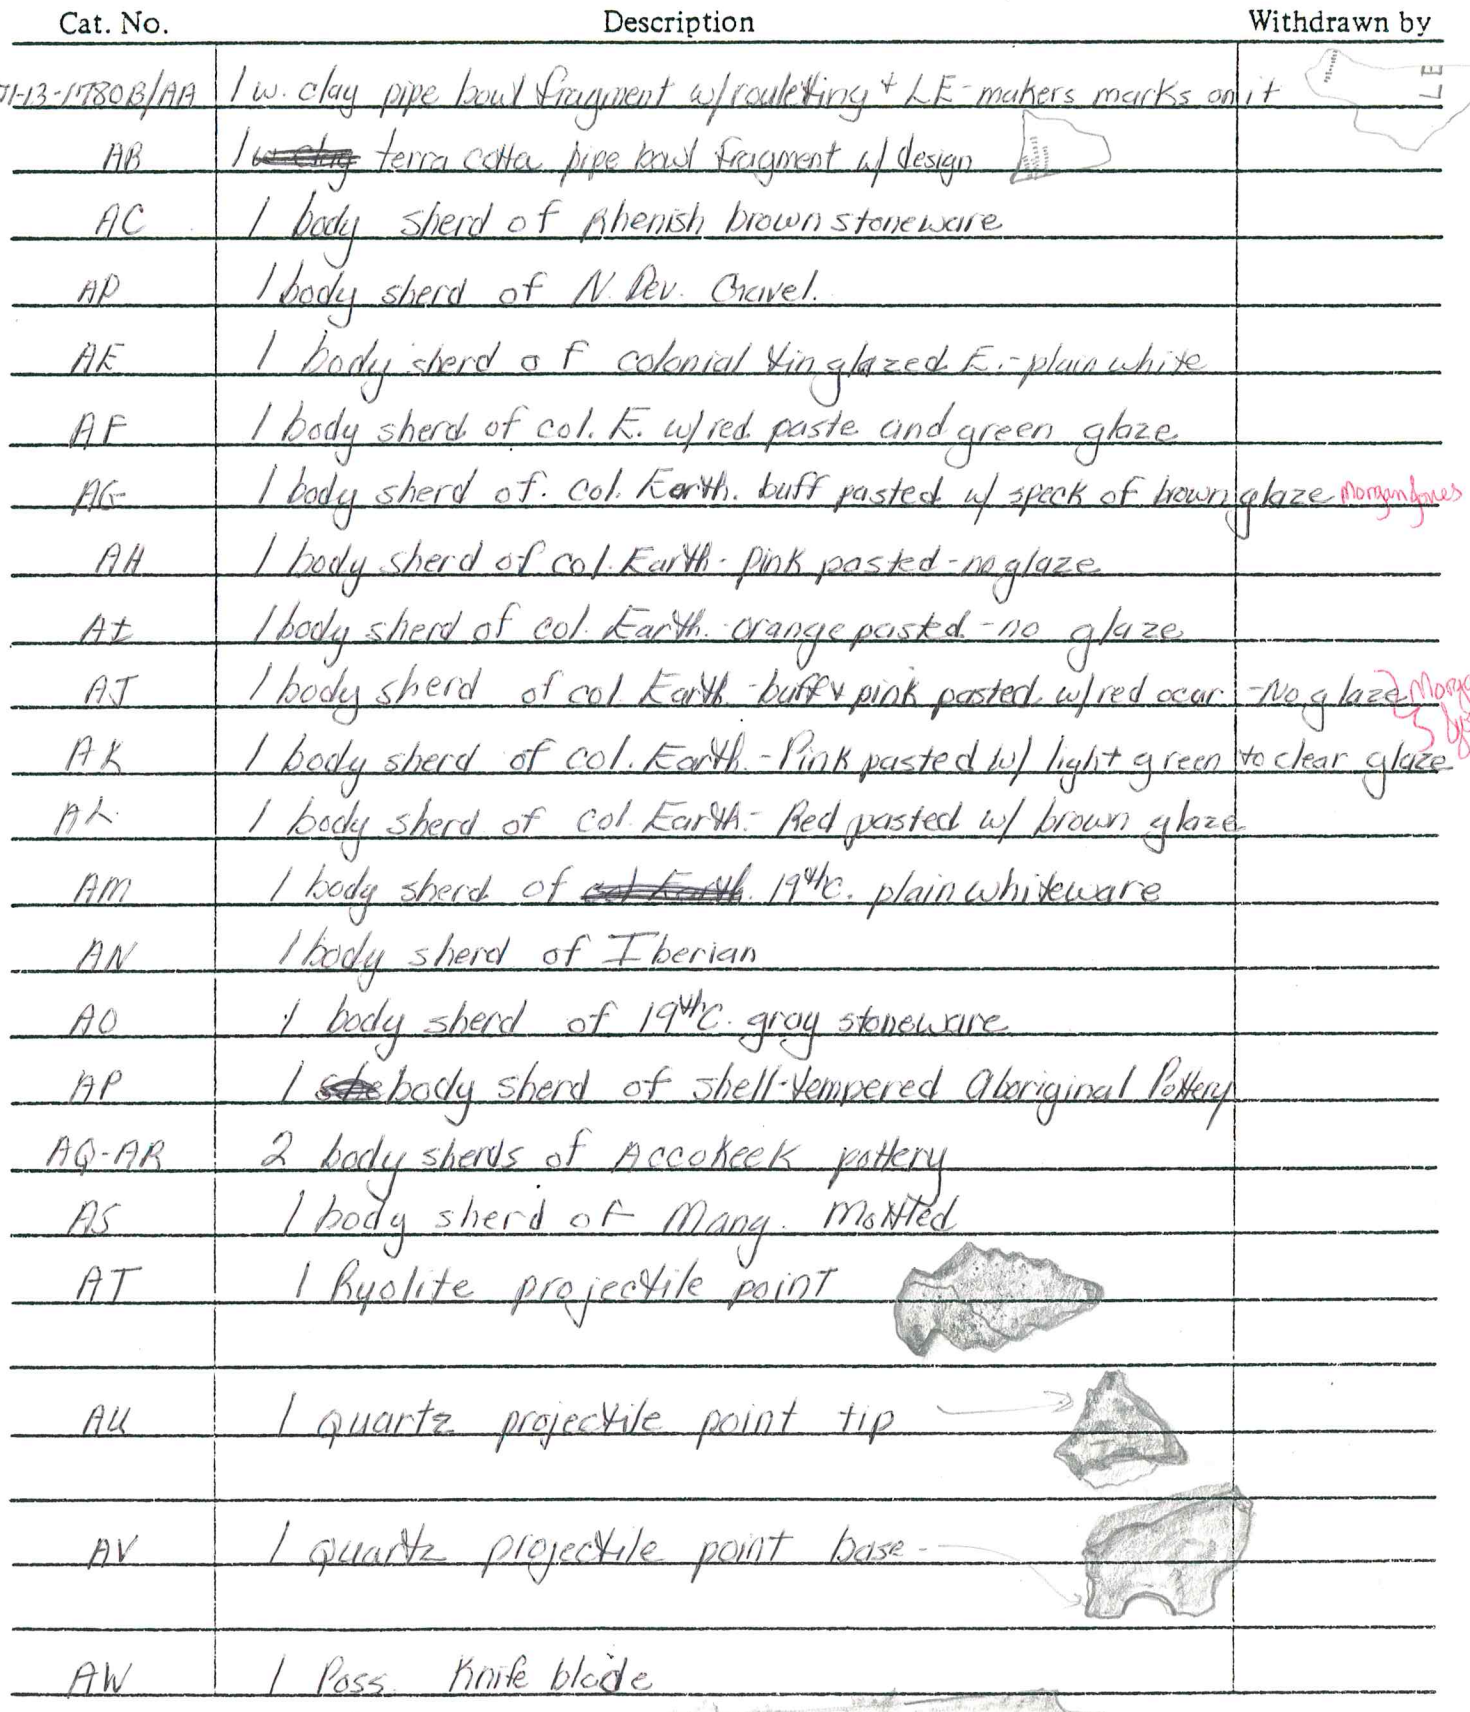 Cat. No. Description Withdrawn by
71-13-1780B/AA 1 w. clay pipe bowl fragment w/rouletting + LE-makers marks on it LE
AB 1 terra cotta pipe bowl fragment w/ design
AC 1 body sherd of Rhenish brown stoneware
AD 1 body sherd of N. Dev. Gravel.
AE 1 body sherd of colonial tin glazed E.-plain white
AF 1 body sherd of col. E. w/red paste and green glaze
AG 1 body sherd of. col. Earth. buff pasted w/ speck of brown glaze Morgan Jones
AH 1 body sherd of col. Earth - pink pasted - no glaze
AI 1 body sherd of col. Earth. - orange pasted - no glaze
AJ 1 body sherd of col. Earth - buff + pink pasted w/red ocar - No glaze
AK 1 body sherd of col. Earth. - Pink pasted w/ light green to clear glaze
AL 1 body sherd of col. Earth. - Red pasted w/ brown glaze
AM 1 body sherd of col Earth. 19thC. plain whiteware
AN 1 body sherd of Iberian
AO 1 body sherd of 19thC. gray stoneware
AP 1 body sherd of shell-tempered Aboriginal Pottery
AQ-AR 2 body sherds of Accokeek pottery
AS 1 body sherd of Mang. Mottled
AT 1 Ryolite projectile point
AU 1 quartz projectile point tip
AV 1 quartz projectile point base -
AW 1 Poss. Knife blade